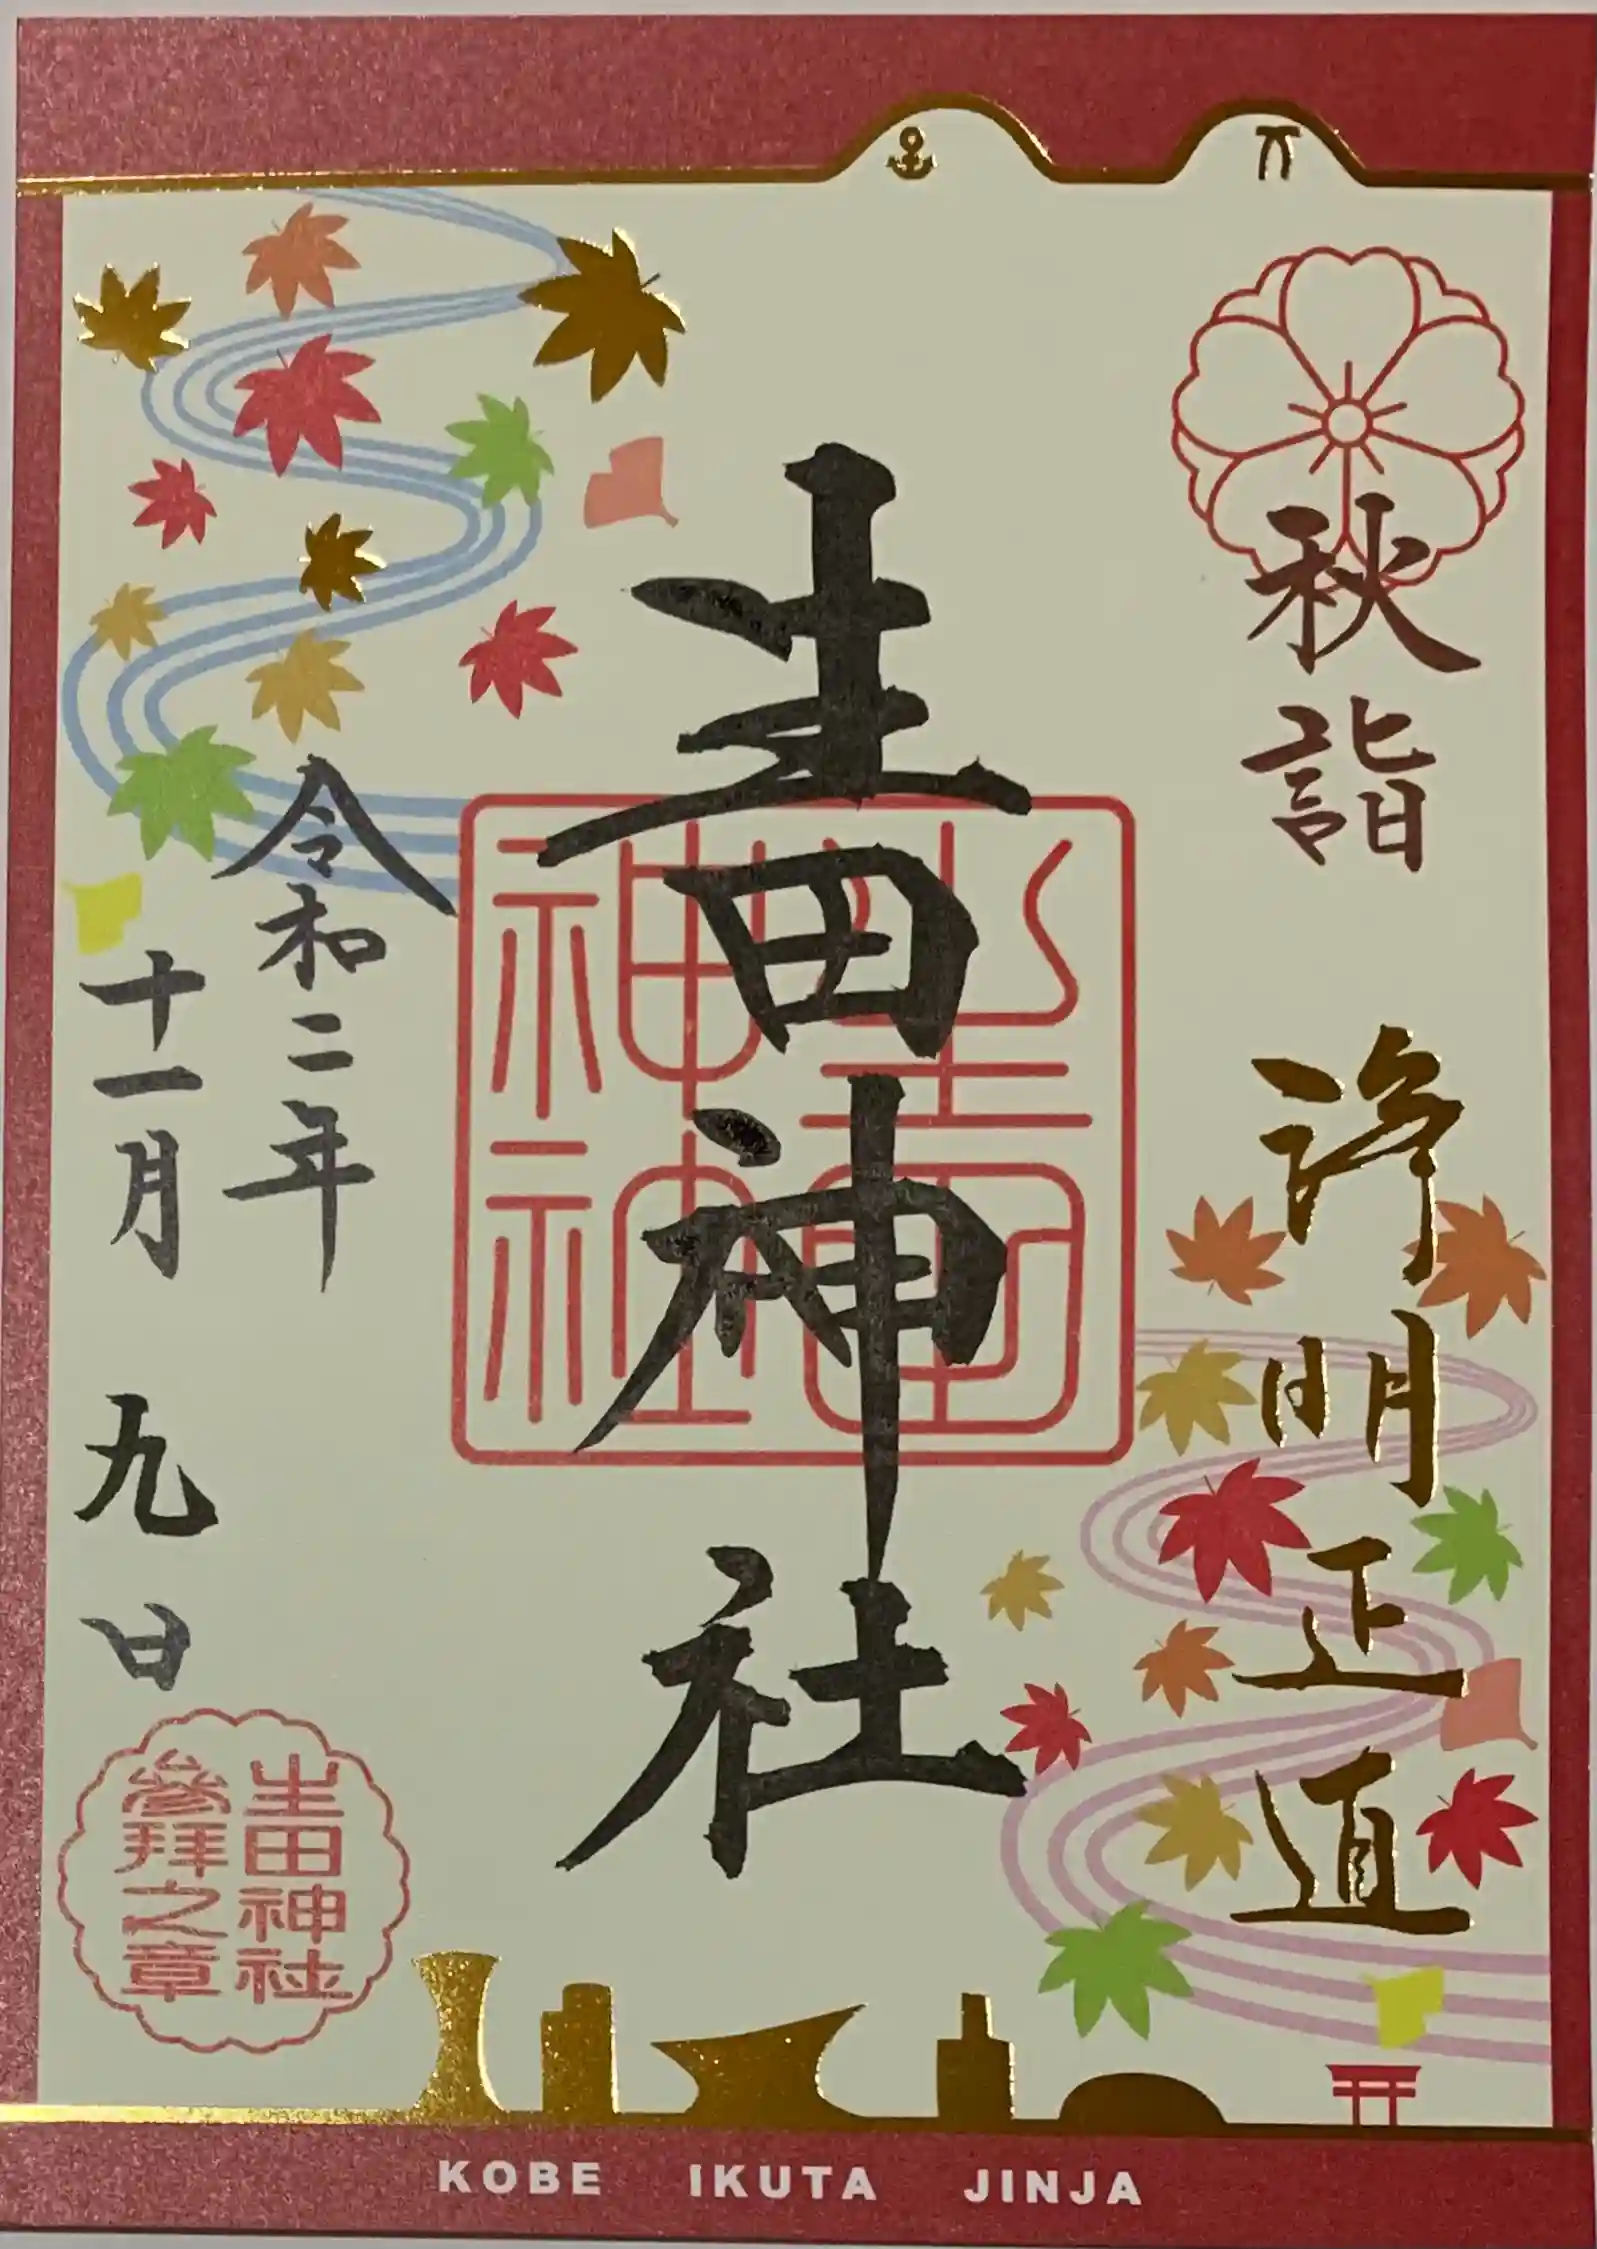 秋詣
浄明正直
生田神社
生田神社
令和二年
十一月 九日
生田神社
参拜之章
KOBE IKUTA JINJA